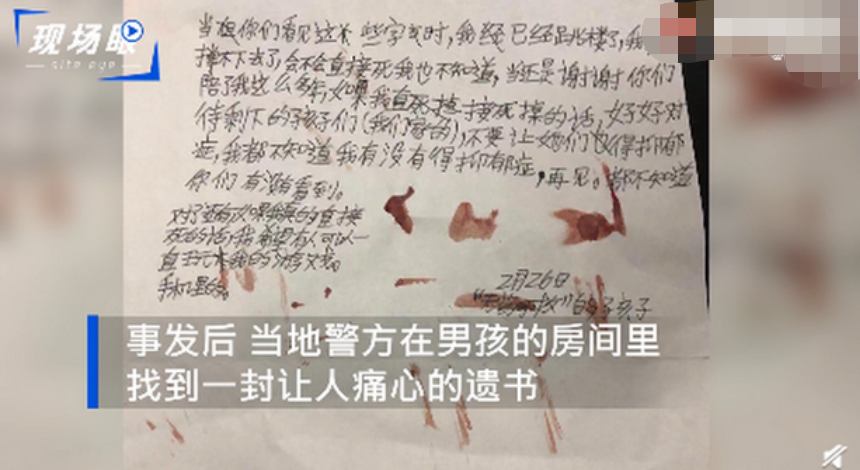 现场眼
site eye
你们看见这不些字时,我经已经跳楼了,我
撑不下去了,会不会直接死我也不知道,当还是谢谢你们
陪了我这么多年,如果我直接死掉的话,好好对
待剩下的孩子们(我们家的),不要让她们也得抑郁
症,我都不知道我有没有得抑郁症,再见。都不知道
你们有没有看到。
对了还有如果我真的直接
死的话,我希望有人可以一
直玩我的游戏。
手机里的。
2月26日
的孩子
事发后 当地警方在男孩的房间里
找到一封让人痛心的遗书